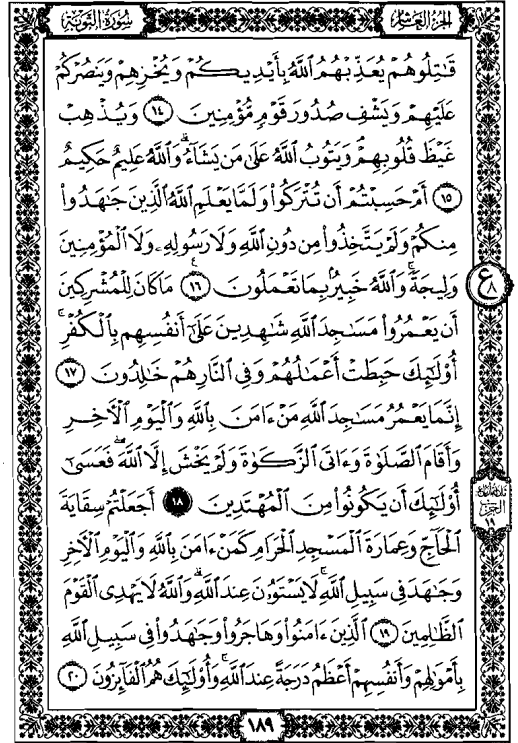 سُورَةُ التَّوْبَةِ
الجُزْءُ العَاشِرُ
قَٰتِلُوهُمْ يُعَذِّبْهُمُ ٱللَّهُ بِأَيْدِيكُمْ وَيُخْزِهِمْ وَيَنصُرْكُمْ
عَلَيْهِمْ وَيَشْفِ صُدُورَ قَوْمٍ مُّؤْمِنِينَ ١٤ وَيُذْهِبْ
غَيْظَ قُلُوبِهِمْ وَيَتُوبُ ٱللَّهُ عَلَىٰ مَن يَشَآءُ وَٱللَّهُ عَلِيمٌ حَكِيمٌ
١٥ أَمْ حَسِبْتُمْ أَن تُتْرَكُوا۟ وَلَمَّا يَعْلَمِ ٱللَّهُ ٱلَّذِينَ جَٰهَدُوا۟
مِنكُمْ وَلَمْ يَتَّخِذُوا۟ مِن دُونِ ٱللَّهِ وَلَا رَسُولِهِۦ وَلَا ٱلْمُؤْمِنِينَ
وَلِيجَةً وَٱللَّهُ خَبِيرٌۢ بِمَا تَعْمَلُونَ ١٦ مَا كَانَ لِلْمُشْرِكِينَ
أَن يَعْمُرُوا۟ مَسَٰجِدَ ٱللَّهِ شَٰهِدِينَ عَلَىٰٓ أَنفُسِهِم بِٱلْكُفْرِ
أُو۟لَٰٓئِكَ حَبِطَتْ أَعْمَٰلُهُمْ وَفِى ٱلنَّارِ هُمْ خَٰلِدُونَ ١٧
إِنَّمَا يَعْمُرُ مَسَٰجِدَ ٱللَّهِ مَنْ ءَامَنَ بِٱللَّهِ وَٱلْيَوْمِ ٱلْءَاخِرِ
وَأَقَامَ ٱلصَّلَوٰةَ وَءَاتَى ٱلزَّكَوٰةَ وَلَمْ يَخْشَ إِلَّا ٱللَّهَ فَعَسَىٰٓ
أُو۟لَٰٓئِكَ أَن يَكُونُوا۟ مِنَ ٱلْمُهْتَدِينَ ١٨ أَجَعَلْتُمْ سِقَايَةَ
ٱلْحَآجِّ وَعِمَارَةَ ٱلْمَسْجِدِ ٱلْحَرَامِ كَمَنْ ءَامَنَ بِٱللَّهِ وَٱلْيَوْمِ ٱلْءَاخِرِ
وَجَٰهَدَ فِى سَبِيلِ ٱللَّهِ لَا يَسْتَوُۥنَ عِندَ ٱللَّهِ وَٱللَّهُ لَا يَهْدِى ٱلْقَوْمَ
ٱلظَّٰلِمِينَ ١٩ ٱلَّذِينَ ءَامَنُوا۟ وَهَاجَرُوا۟ وَجَٰهَدُوا۟ فِى سَبِيلِ ٱللَّهِ
بِأَمْوَٰلِهِمْ وَأَنفُسِهِمْ أَعْظَمُ دَرَجَةً عِندَ ٱللَّهِ وَأُو۟لَٰٓئِكَ هُمُ ٱلْفَآئِزُونَ ٢٠
ع ٨
الحزب
١٩
١٨٩